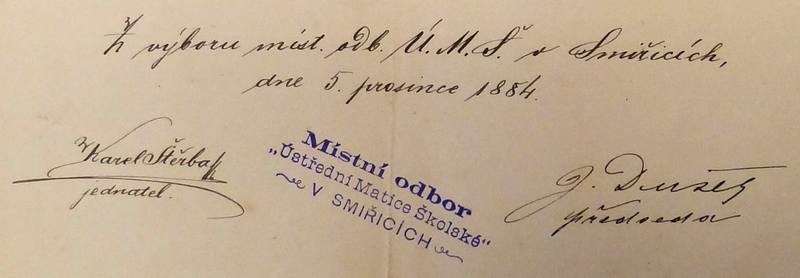 Z výboru míst. odb. Ú. M. Š. v Smiřicích,
dne 5. prosince 1884.
Karel Štěrba
jednatel.
Místní odbor
„Ústřední Matice Školské"
V SMIŘICÍCH
J.
předseda